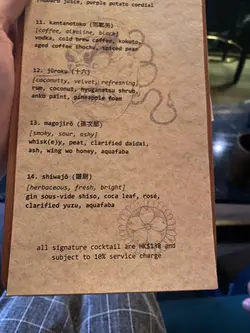 rhubarb juice, purple potato cordial
11. kantanotoko (邯鄲男)
[coffee, alkaline, black]
vodka, cold brew coffee, kokuto,
aged coffee shochu, spiced pear
12. jūroku (十六)
[coconutty, velvet, refreshing]
rum, coconut, hyuganatsu shrub,
anko paint, pineapple foam
13. magojirō (孫次郎)
[smoky, sour, ashy]
whisk(e)y, peat, clarified daidai,
ash, wing wo honey, aquafaba
14. shiwajō (皺尉)
[herbaceous, fresh, bright]
gin sous-vide shiso, coca leaf, rosé,
clarified yuzu, aquafaba
all signature cocktail are HK$138 and
subject to 10% service charge